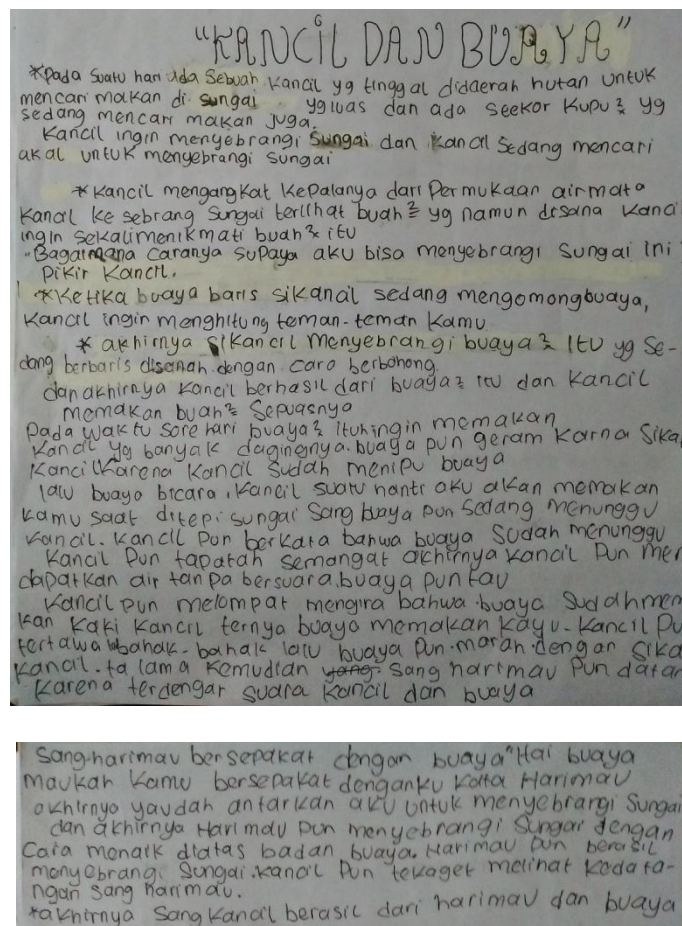 "KANCiL DAN BUAYA"
*Pada suatu hari ada sebuah kancil yg tinggal didaerah hutan untuk
mencari makan di sungai yg luas dan ada seekor kupu2 yg
sedang mencari makan juga.
Kancil ingin menyebrangi sungai dan kancil sedang mencari
akal untuk menyebrangi sungai
*Kancil mengangkat kepalanya dari permukaan air mata
kancil ke sebrang sungai terlihat buah2 yg namun disana kanci
ingin sekali menikmati buah2 itu
"Bagaimana caranya supaya aku bisa menyebrangi sungai ini
Pikir kancil.
*Ketika buaya baris sikancil sedang mengomongbuaya,
kancil ingin menghitung teman-teman kamu
* akhirnya sikancil menyebrangi buaya2 itu yg se-
dang berbaris disanah dengan cara berbohong.
dan akhirnya kancil berhasil dari buaya2 itu dan kancil
memakan buah2 sepuasnya
Pada waktu sore hari buaya2 itu ingin memakan
kancil yg banyak dagingnya. buaya pun geram karna sika
kancil karena kancil sudah menipu buaya
lalu buaya bicara, kancil suatu nanti aku akan memakan
kamu saat ditepi sungai sang buaya pun sedang menunggu
kancil. kancil pun berkata bahwa buaya sudah menunggu
kancil pun tapatah semangat akhirnya kancil pun men
dapatkan air tanpa bersuara. buaya pun tau
kancil pun melompat mengira bahwa buaya sudah men
kan kaki kancil ternya buaya memakan kayu. kancil pu
tertawa bahak-bahak lalu buaya pun marah dengan sika
kancil. ta lama kemudian yang sang harimau pun datan
karena terdengar suara kancil dan buaya
Sang harimau bersepakat dengan buaya "Hai buaya
maukah kamu bersepakat denganku kata Harimau
akhirnyo yaudah antarkan aku untuk menyebrangi sungai
dan akhirnya Harimau pun menyebrangi sungai dengan
cara menaik diatas badan buaya. Harimau pun berasil
menyebrangi sungai. kancil pun tekaget melihat kedata-
ngan sang harimau.
*akhirnya sang kancil berasil dari harimau dan buaya